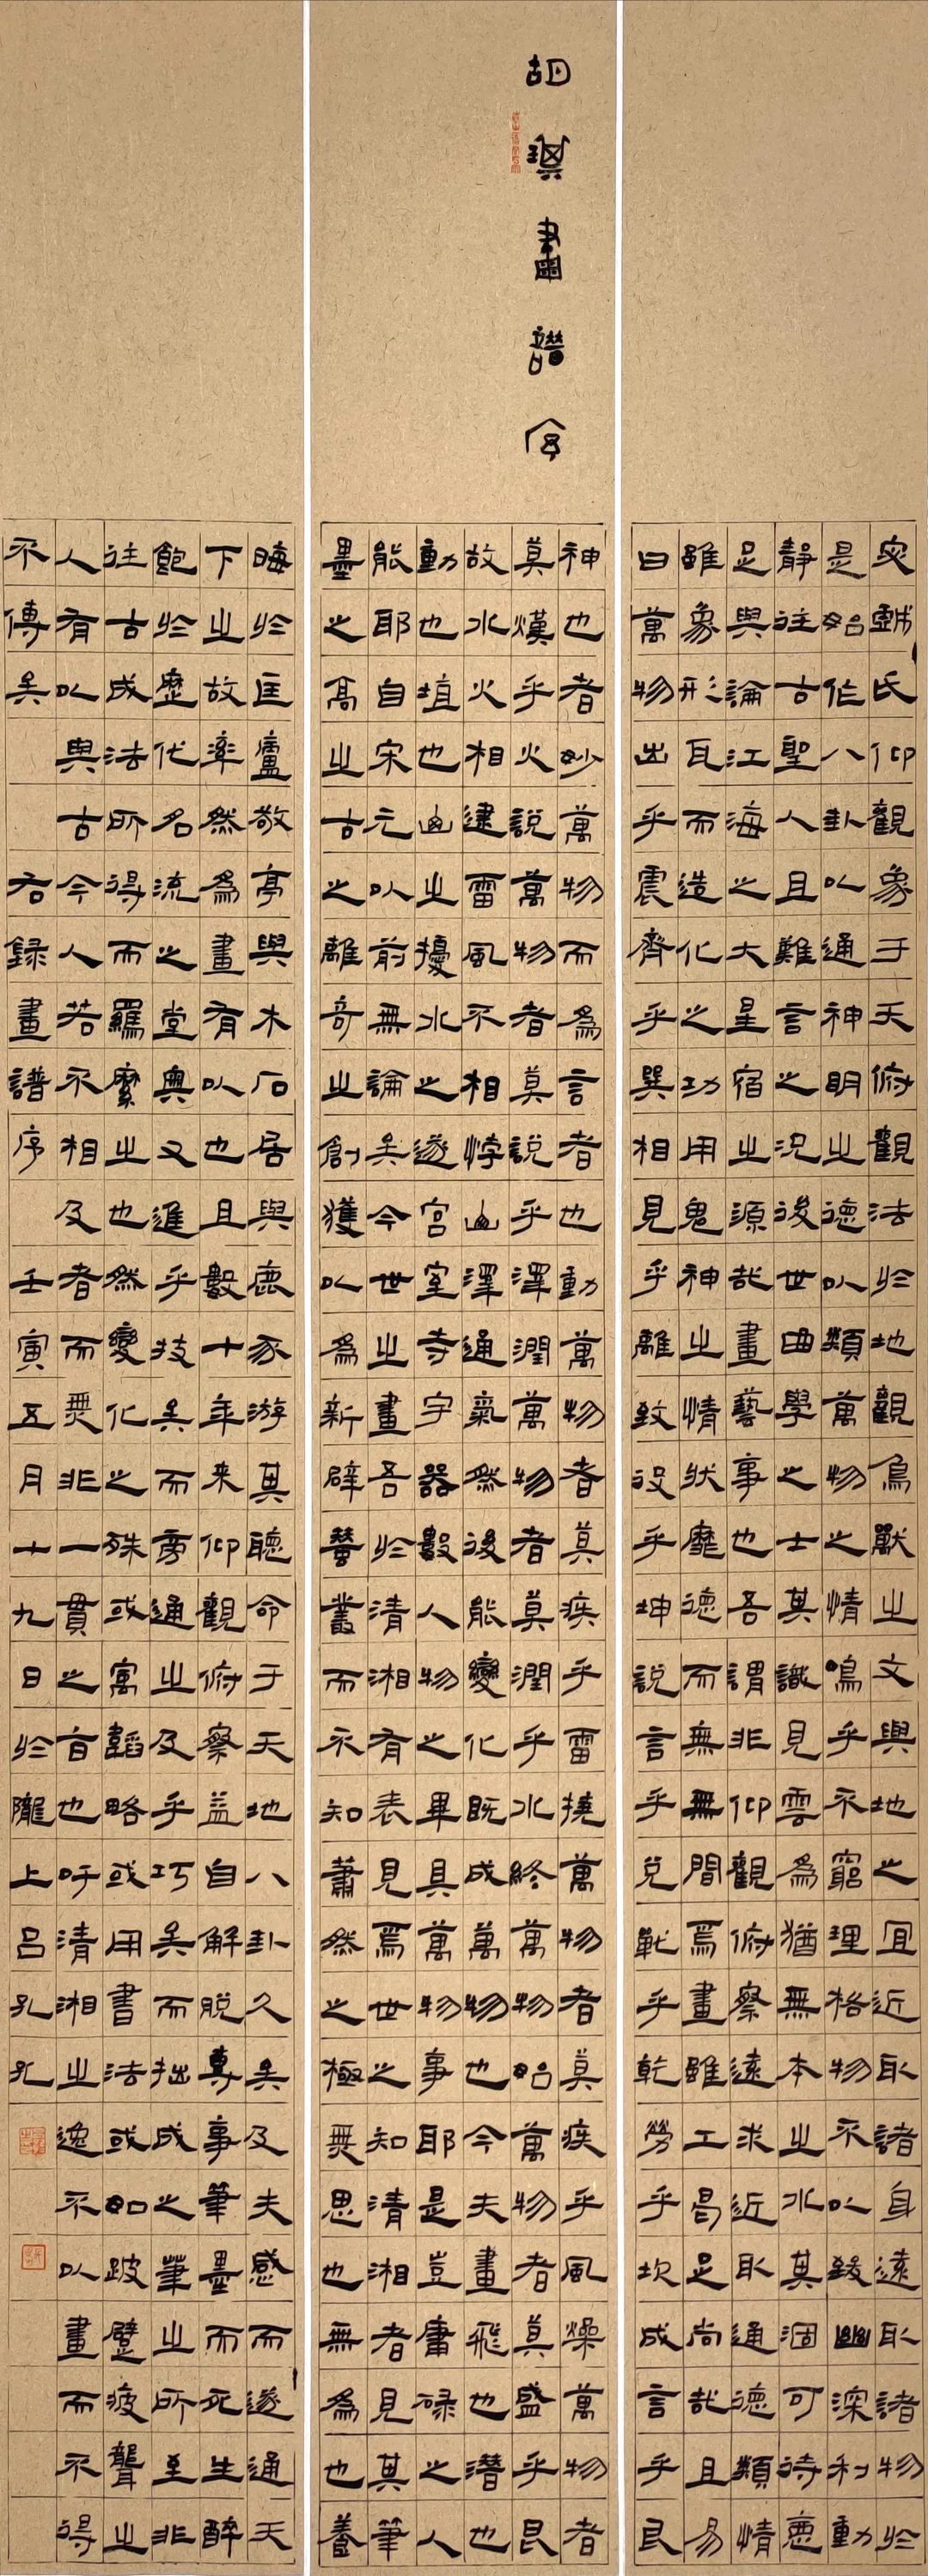 胡琪畫譜序
宓戲氏仰觀象于天俯觀法於地觀鳥獸之文與地之宜近取諸身遠取諸物於
是始作八卦以通神明之德以類萬物之情鳴乎不窮理格物不以致幽深利動
靜往古聖人且難言之況後世曲學之士其識見雲為猶無本之水其涸可待惡
足與論江海之大星宿之源哉畫藝事也吾謂非仰觀俯察遠求近取通德類情
雖象形瓦而造化之功用鬼神之情狀靡德而無無間焉畫雖工曷足尚哉且易
曰萬物出乎震齊乎巽相見乎離致役乎坤說言乎兌戰乎乾勞乎坎成言乎艮
神也者妙萬物而為言者也動萬物者莫疾乎雷撓萬物者莫疾乎風燥萬物者
莫熯乎火說萬物者莫說乎澤潤萬物者莫潤乎水終萬物始萬物者莫盛乎艮
故水火相逮雷風不相悖山澤通氣然後能變化既成萬物也今夫畫飛也潛也
動也植也山之擾水之邃宮室寺宇器數人物之畢具萬物事耶是豈庸碌之人
能耶自宋元以前無論矣今世之畫吾於清湘有表見焉世之知清湘者見其筆
墨之高之古之離奇之創獲以為新辟蠶叢而不知蕭然之極無思也無為也養
晦於匡廬敬亭與木石居與鹿豕游其聽命于天地八卦久矣及夫感而遂通天
下之故率然為畫有以也且數十年來仰觀俯察益自解脫專事筆墨而死生醉
飽於歷代名流之堂奧又進乎技矣而旁通之及乎巧矣而拙成之筆之所至非
往古成法所得而羈縻之也然變化之殊或寓韜略或用書法或如跛躄疲聾之
人有以與古今人若不相及者而無非一貫之旨也吁清湘之逸不以畫而不得
不傳矣 右錄畫譜序 壬寅五月十九日於隴上呂孔孔